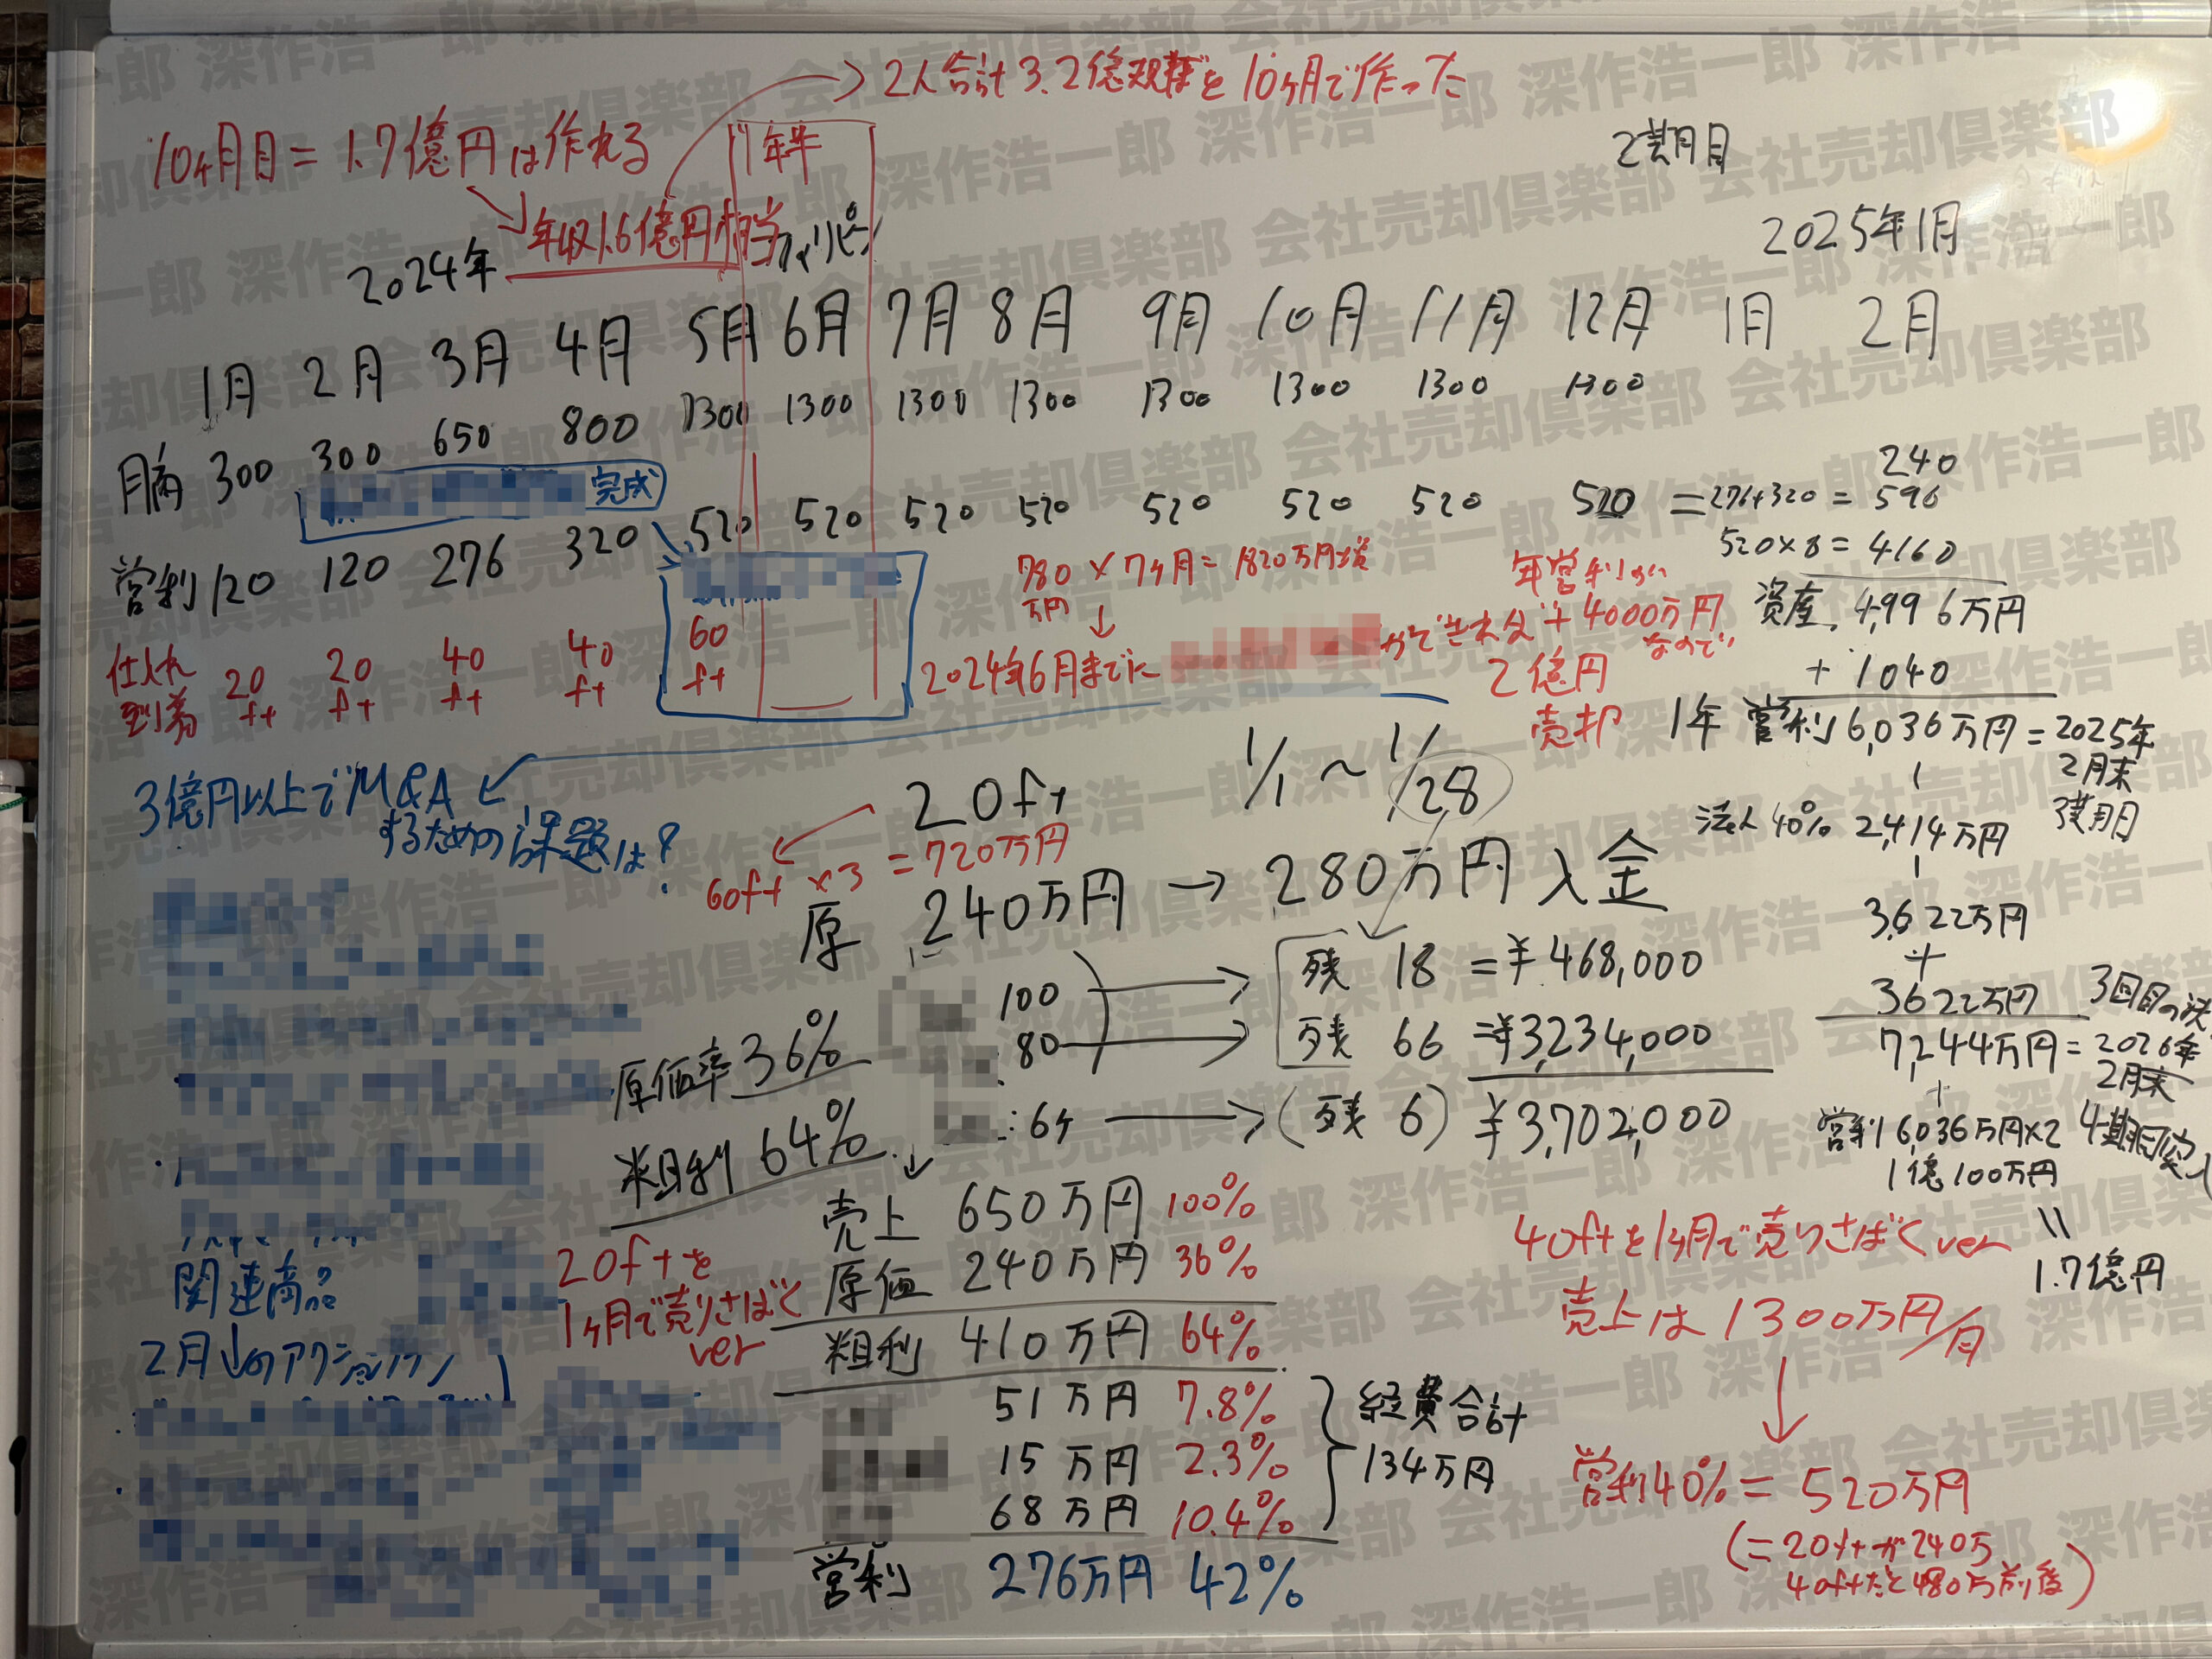 2人合計3.2億規模を10ヶ月で作った
10ヶ月目=1.7億円は作れる
年収1.6億円相当
1年半
フィリピン
2期目
2024年
2025年1月
1月 2月 3月 4月 5月 6月 7月 8月 9月 10月 11月 12月 1月 2月
月商 300 300 650 800 1300 1300 1300 1300 1300 1300 1300 1300
完成
営利 120 120 276 320 520 520 520 520 520 520 520 520 = 276+320 = 596
240
520×8 = 4160
資産 4,996万円
+1040
1年 営利 6,036万円=2025年2月末
3期目
法人40% 2,414万円
3,622万円
+
3622万円
7,244万円=2026年2月末
3回目の決
+
営利 6,036万円×2
4期目突入
1億100万円
〃
1.7億円
仕入れ到着 20ft 20ft 40ft 40ft 60ft
780万円×7ヶ月=1820万円
2024年6月までに
ができれば+4000万円
年営利が
なので
2億円
売却
3億円以上でM&A
するための課題は?
20ft 1/1~1/28
60ft×3=720万円
原 240万円→280万円入金
100
残 18 =¥468,000
80
残 66 =¥3,234,000
:6ヶ
(残 6) ¥3,702,000
原価率36%
粗利 64%
20ftを
1ヶ月で売りさばく
ver
売上 650万円 100%
原価 240万円 36%
粗利 410万円 64%
51万円 7.8%
15万円 2.3%
68万円 10.4%
経費合計
134万円
営利 276万円 42%
関連商品
2月↓のアクションプラン
40ftを1ヶ月で売りさばくver
売上は1300万円/月
営利40%=520万円
(=20ftが240万
40ftだと480万前後)
深作浩一郎 会社売却倶楽部